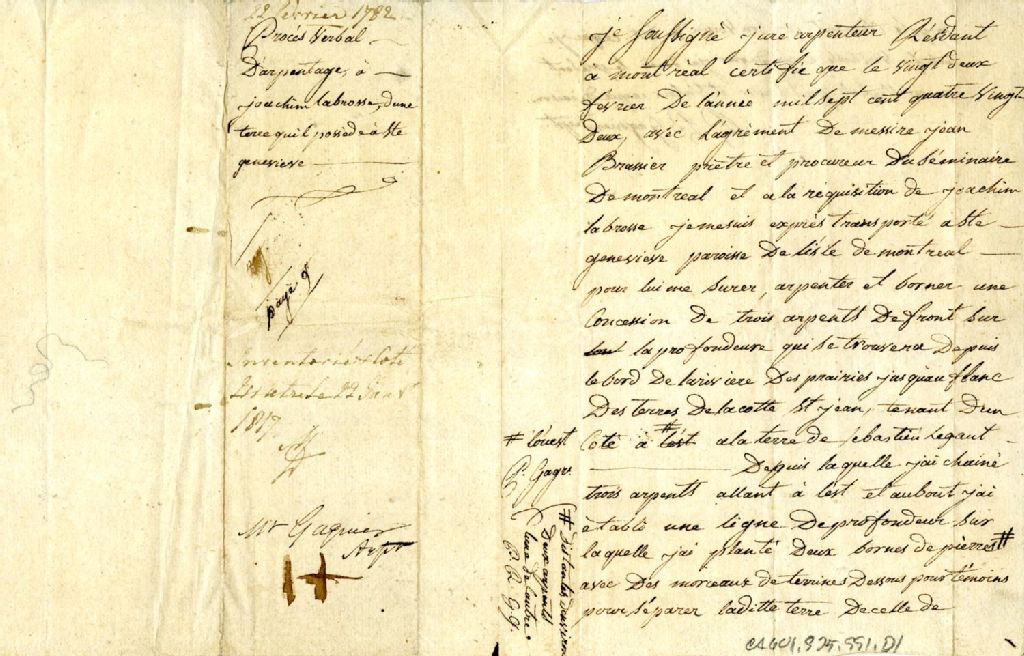 22 février 1782
Procés Verbal
D'arpentage, à
joachim labrosse, d'une
terre qu'il possede à Ste
genevieve
payé
Inventorié & Coté
1817
Mr Gagnier
Arptr
14
je soussigné juré arpenteur Résidant
a montréal certifie que le vingt deux
fevrier De l'année mil sept cent quatre vingt
Deux, avec l'agrément De messire jean
Brassier prêtre et procureur Du séminaire
De montreal et a la réquisition de joachim
labrosse je me suis exprès transporté a Ste
genevieve paroisse De l'isle de montreal
pour lui me surer, arpenter et borner une
Concession De trois arpents De front sur
la profondeure qui se trouvera Depuis
le bord De la riviere Des prairies jusqu'au flanc
Des terres De la cotte St jean, tenant D'un
Coté à # l'est a la terre de sebastien legaut
Depuis laquelle j'ai chainé
trois arpents allant à l'est et au bout j'ai
établé une ligne De profondeur sur
laquelle j'ai planté Deux bornes de pierres #
avec Des morceaux de terrines Dessous pour témoins
pour séparer laditte terre De celle de
# l'ouest
P. Gagr.
# Distantes d'environ
Deux arpents
l'une de l'autre
CAGQ1.925.991.D1